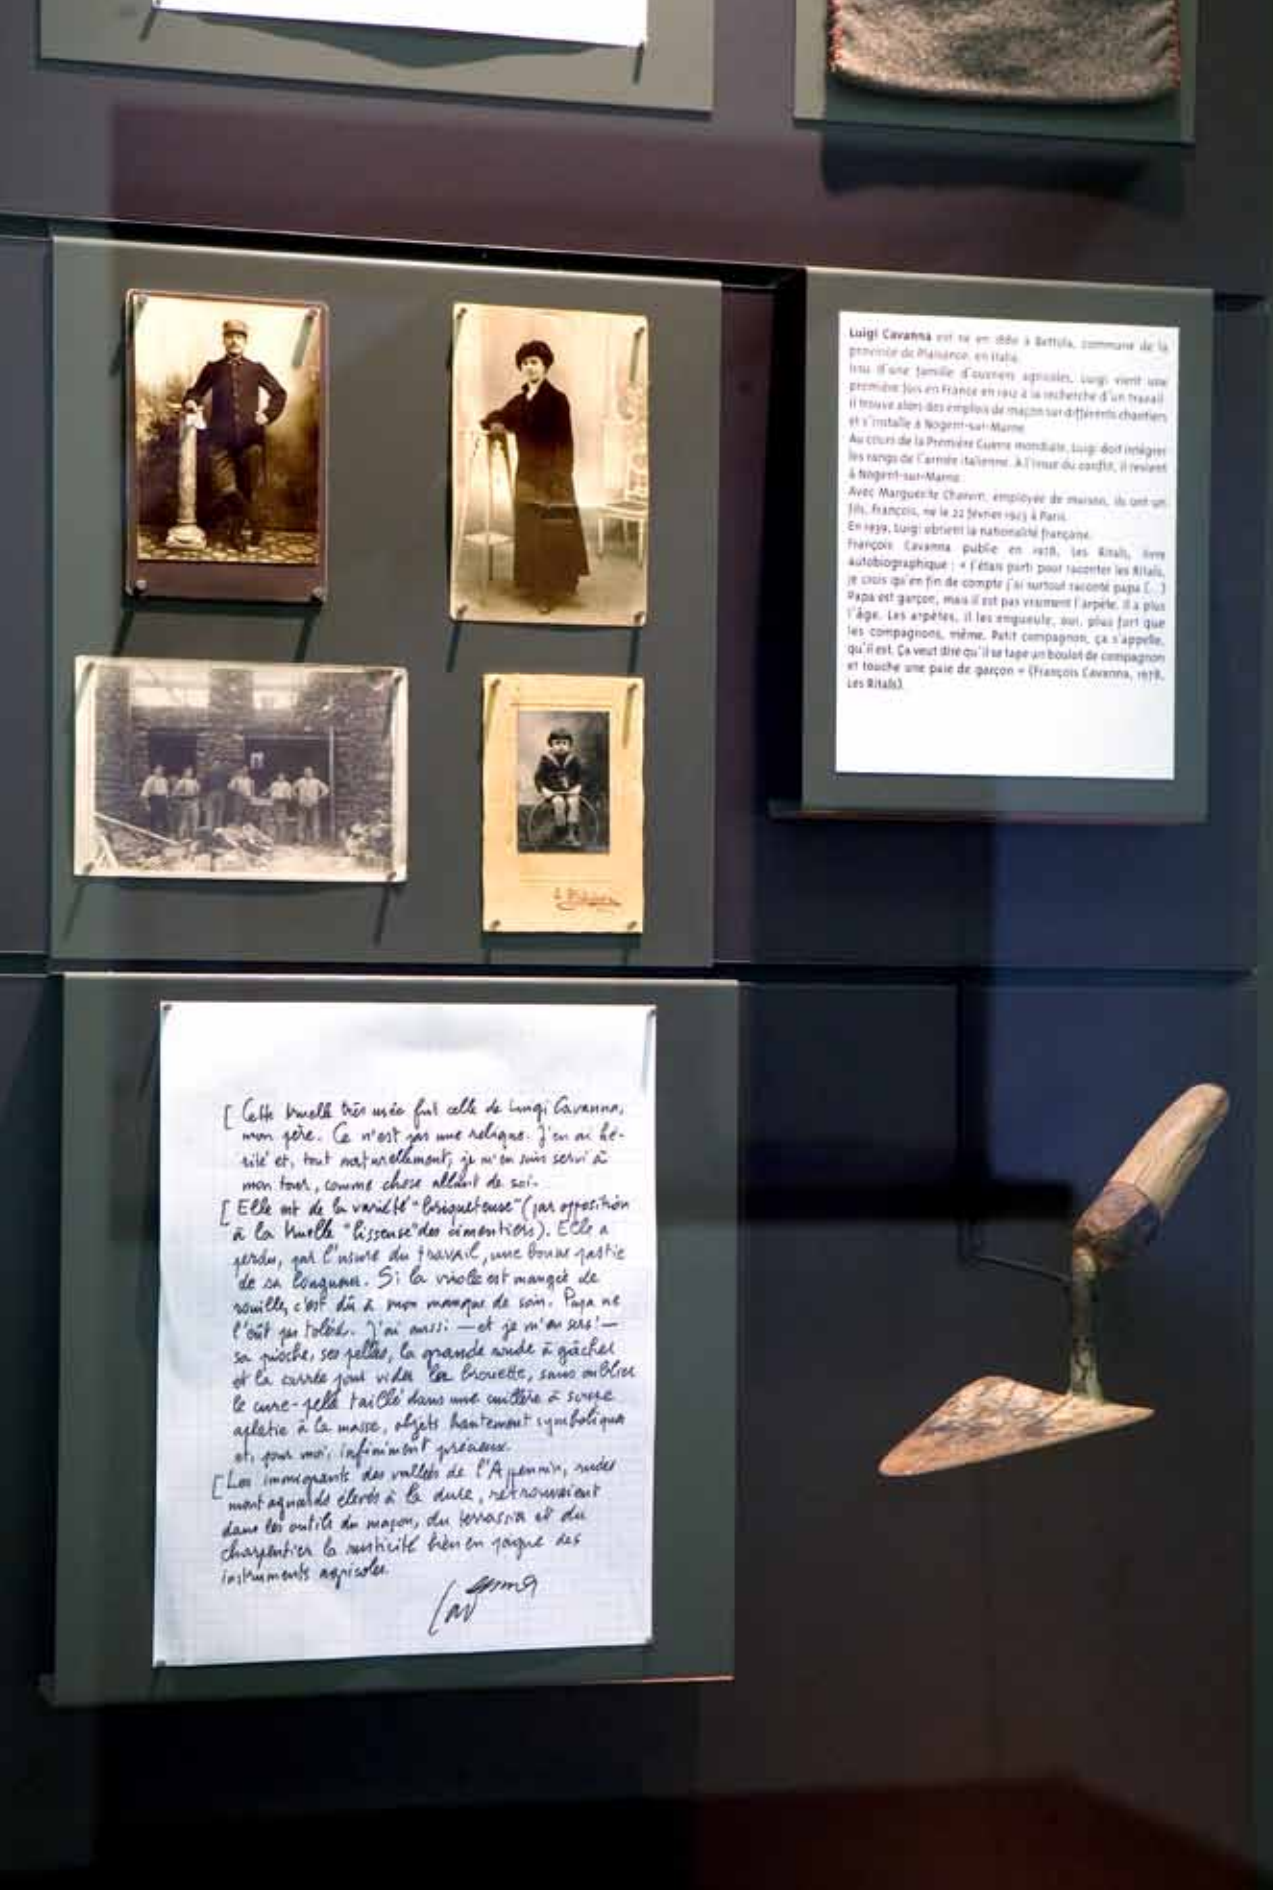 Luigi Cavanna est né en 1880 à Bettola, commune de la
province de Plaisance, en Italie.
Issu d'une famille d'ouvriers agricoles, Luigi vient une
première fois en France en 1912 à la recherche d'un travail.
Il trouve alors des emplois de maçon sur différents chantiers
et s'installe à Nogent-sur-Marne.
Au cours de la Première Guerre mondiale, Luigi doit intégrer
les rangs de l'armée italienne. A l'issue du conflit, il revient
à Nogent-sur-Marne.
Avec Marguerite Charvin, employée de maison, ils ont un
fils, François, né le 22 février 1923 à Paris.
En 1939, Luigi obtient la nationalité française.
François Cavanna publie en 1978, Les Ritals, livre
autobiographique : « J'étais parti pour raconter les Ritals,
je crois qu'en fin de compte j'ai surtout raconté papa (...)
Papa est garçon, mais il est pas vraiment l'arpète. Il a plus
l'âge. Les arpètes, il les engueule, oui, plus fort que
les compagnons, même. Petit compagnon, ça s'appelle,
qu'il est. Ça veut dire qu'il se tape un boulot de compagnon
et touche une paie de garçon » (François Cavanna, 1978,
Les Ritals).
[ Cette truelle très usée fut celle de Luigi Cavanna,
mon père. Ce n'est pas une relique. J'en ai hé-
rité et, tout naturellement, je m'en suis servi à
mon tour, comme chose allant de soi.
[ Elle est de la variété "briqueteuse" (par opposition
à la truelle "lisseuse" des cimentiers). Elle a
perdu, par l'usure du travail, une bonne partie
de sa longueur. Si la virole est mangée de
rouille, c'est dû à mon manque de soin. Papa ne
l'eût pas toléré. J'ai aussi — et je m'en sers ! —
sa pioche, ses pelles, la grande ronde à gâcher
et la carrée pour vider la brouette, sans oublier
le cure-pelle taillé dans une cuillère à soupe
aplatie à la masse, objets hautement symboliques
et, pour moi, infiniment précieux.
[ Les immigrants des vallées de l'Apennin, rudes
montagnards élevés à la dure, retrouvaient
dans les outils du maçon, du terrassier et du
charpentier la rusticité bien en poigne des
instruments agricoles.
Cavanna